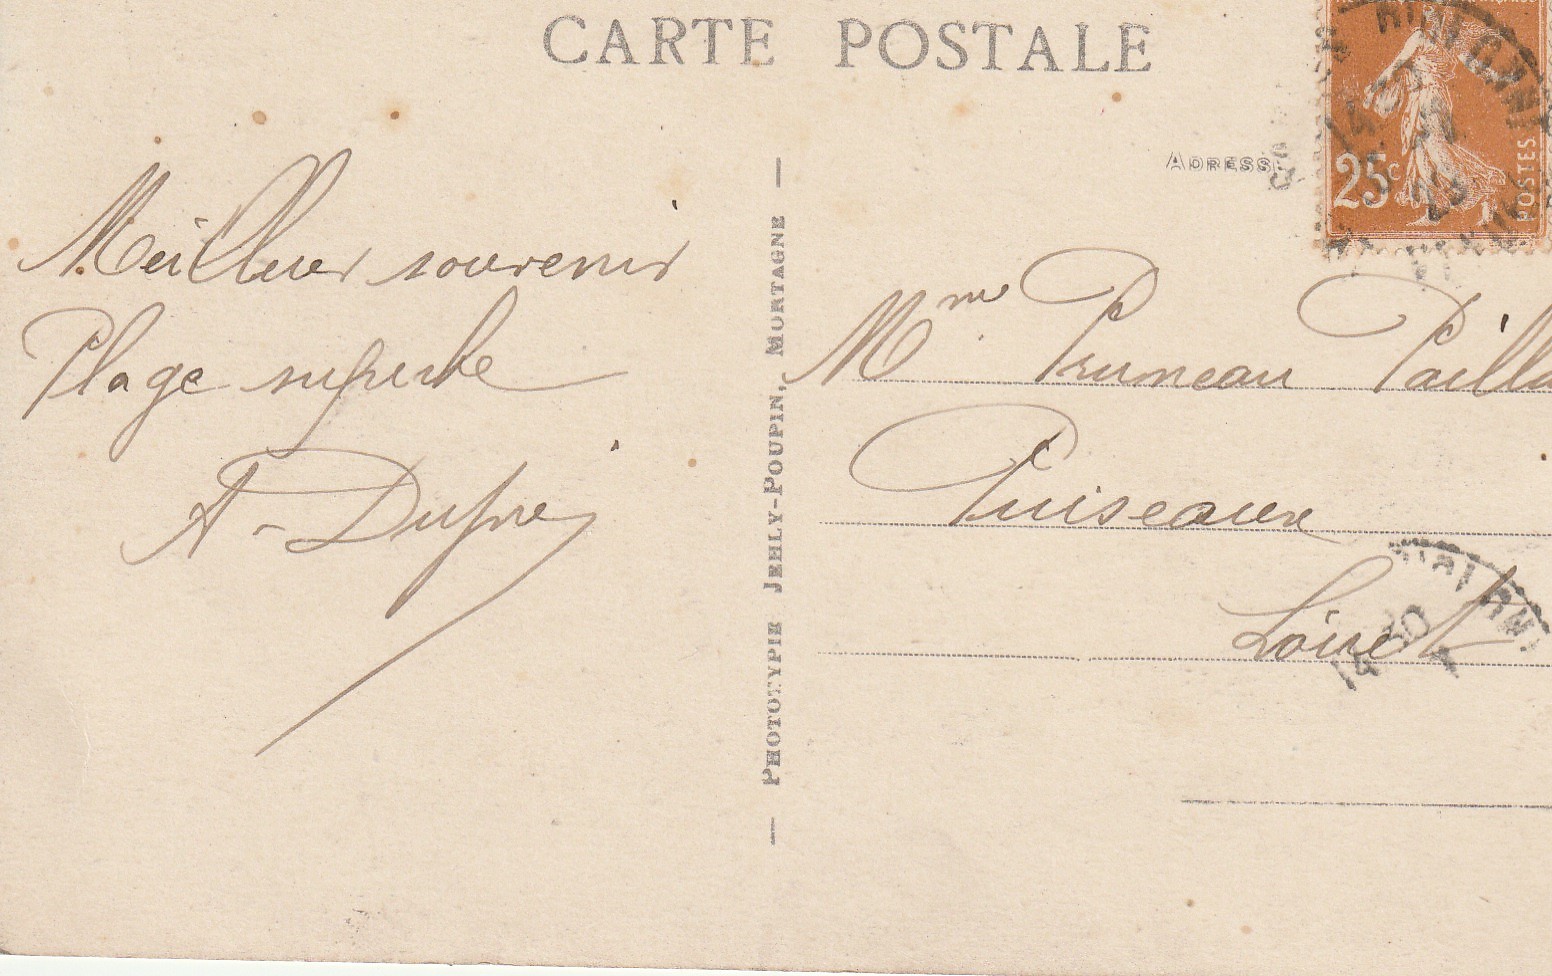 CARTE POSTALE
ADRESSE
Meilleur souvenir
Plage superbe
A. Dupré
— PHOTOTYPIE JEHLY-POUPIN, MORTAGNE —
25c
POSTES
Mme Pruneau
Puiseaux
Loiret
14 30